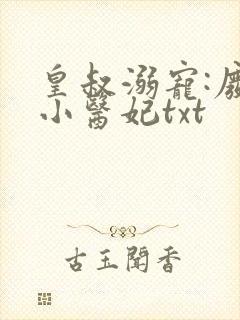 皇叔溺寵:廢
小醫妃txt
古玉聞香